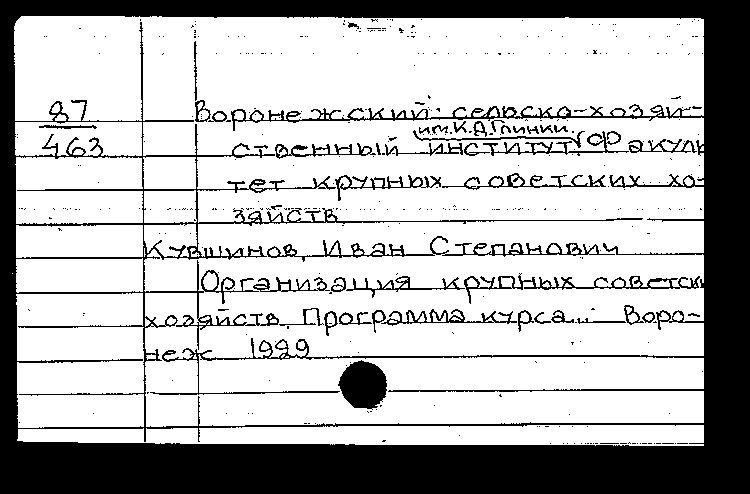 87
463
Воронежский сельско-хозяй-
им. К.Д. Глинки.
ственный институт. Факуль
тет крупных советских хо-
зяйств
Кувшинов, Иван Степанович
Организация крупных советск
хозяйств. Программа курса... Воро-
неж 1929